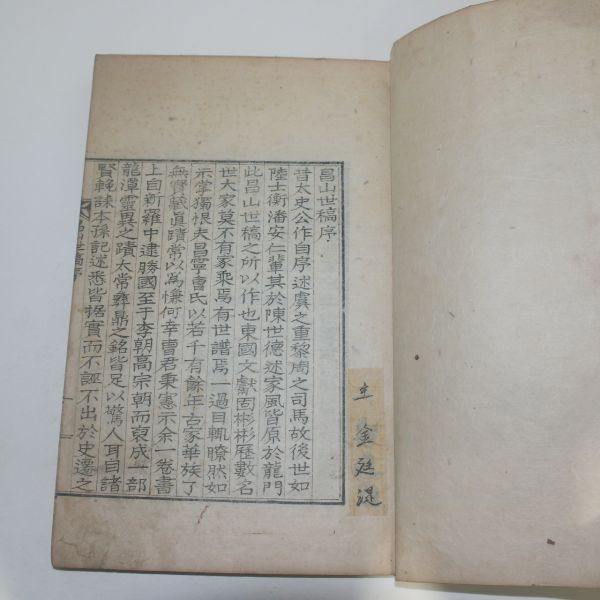 昌山世稿序
昔太史公作自序述虞之重黎周之司馬故後世如
陸士衡潘安仁輩其於陳世德述家風皆原於龍門
此昌山世稿之所以作也東國文獻固彬彬歷數名
世大家莫不有家乘焉有世譜焉一過目輒瞭然如
示掌獨恨夫昌寧曺氏以若千有餘年古家華族了
無實職眞蹟常以爲慊何幸曺君秉憲示余一卷書
上自新羅中逮勝國至于李朝高宗朝而裒成一部
龍潭靈異之蹟太常彝鼎之銘皆足以驚人耳目諸
賢範謨本孫記述悉皆据實而不誣不出於史遷之
世稿序
主 金廷湜